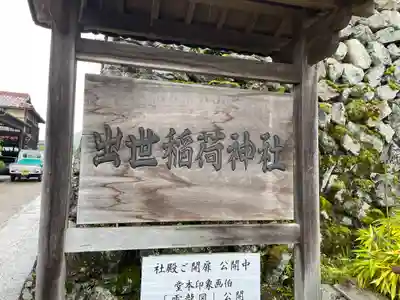 出世稲荷神社
社殿ご開扉 公開中
堂本印象画伯
「雲龍図」公開